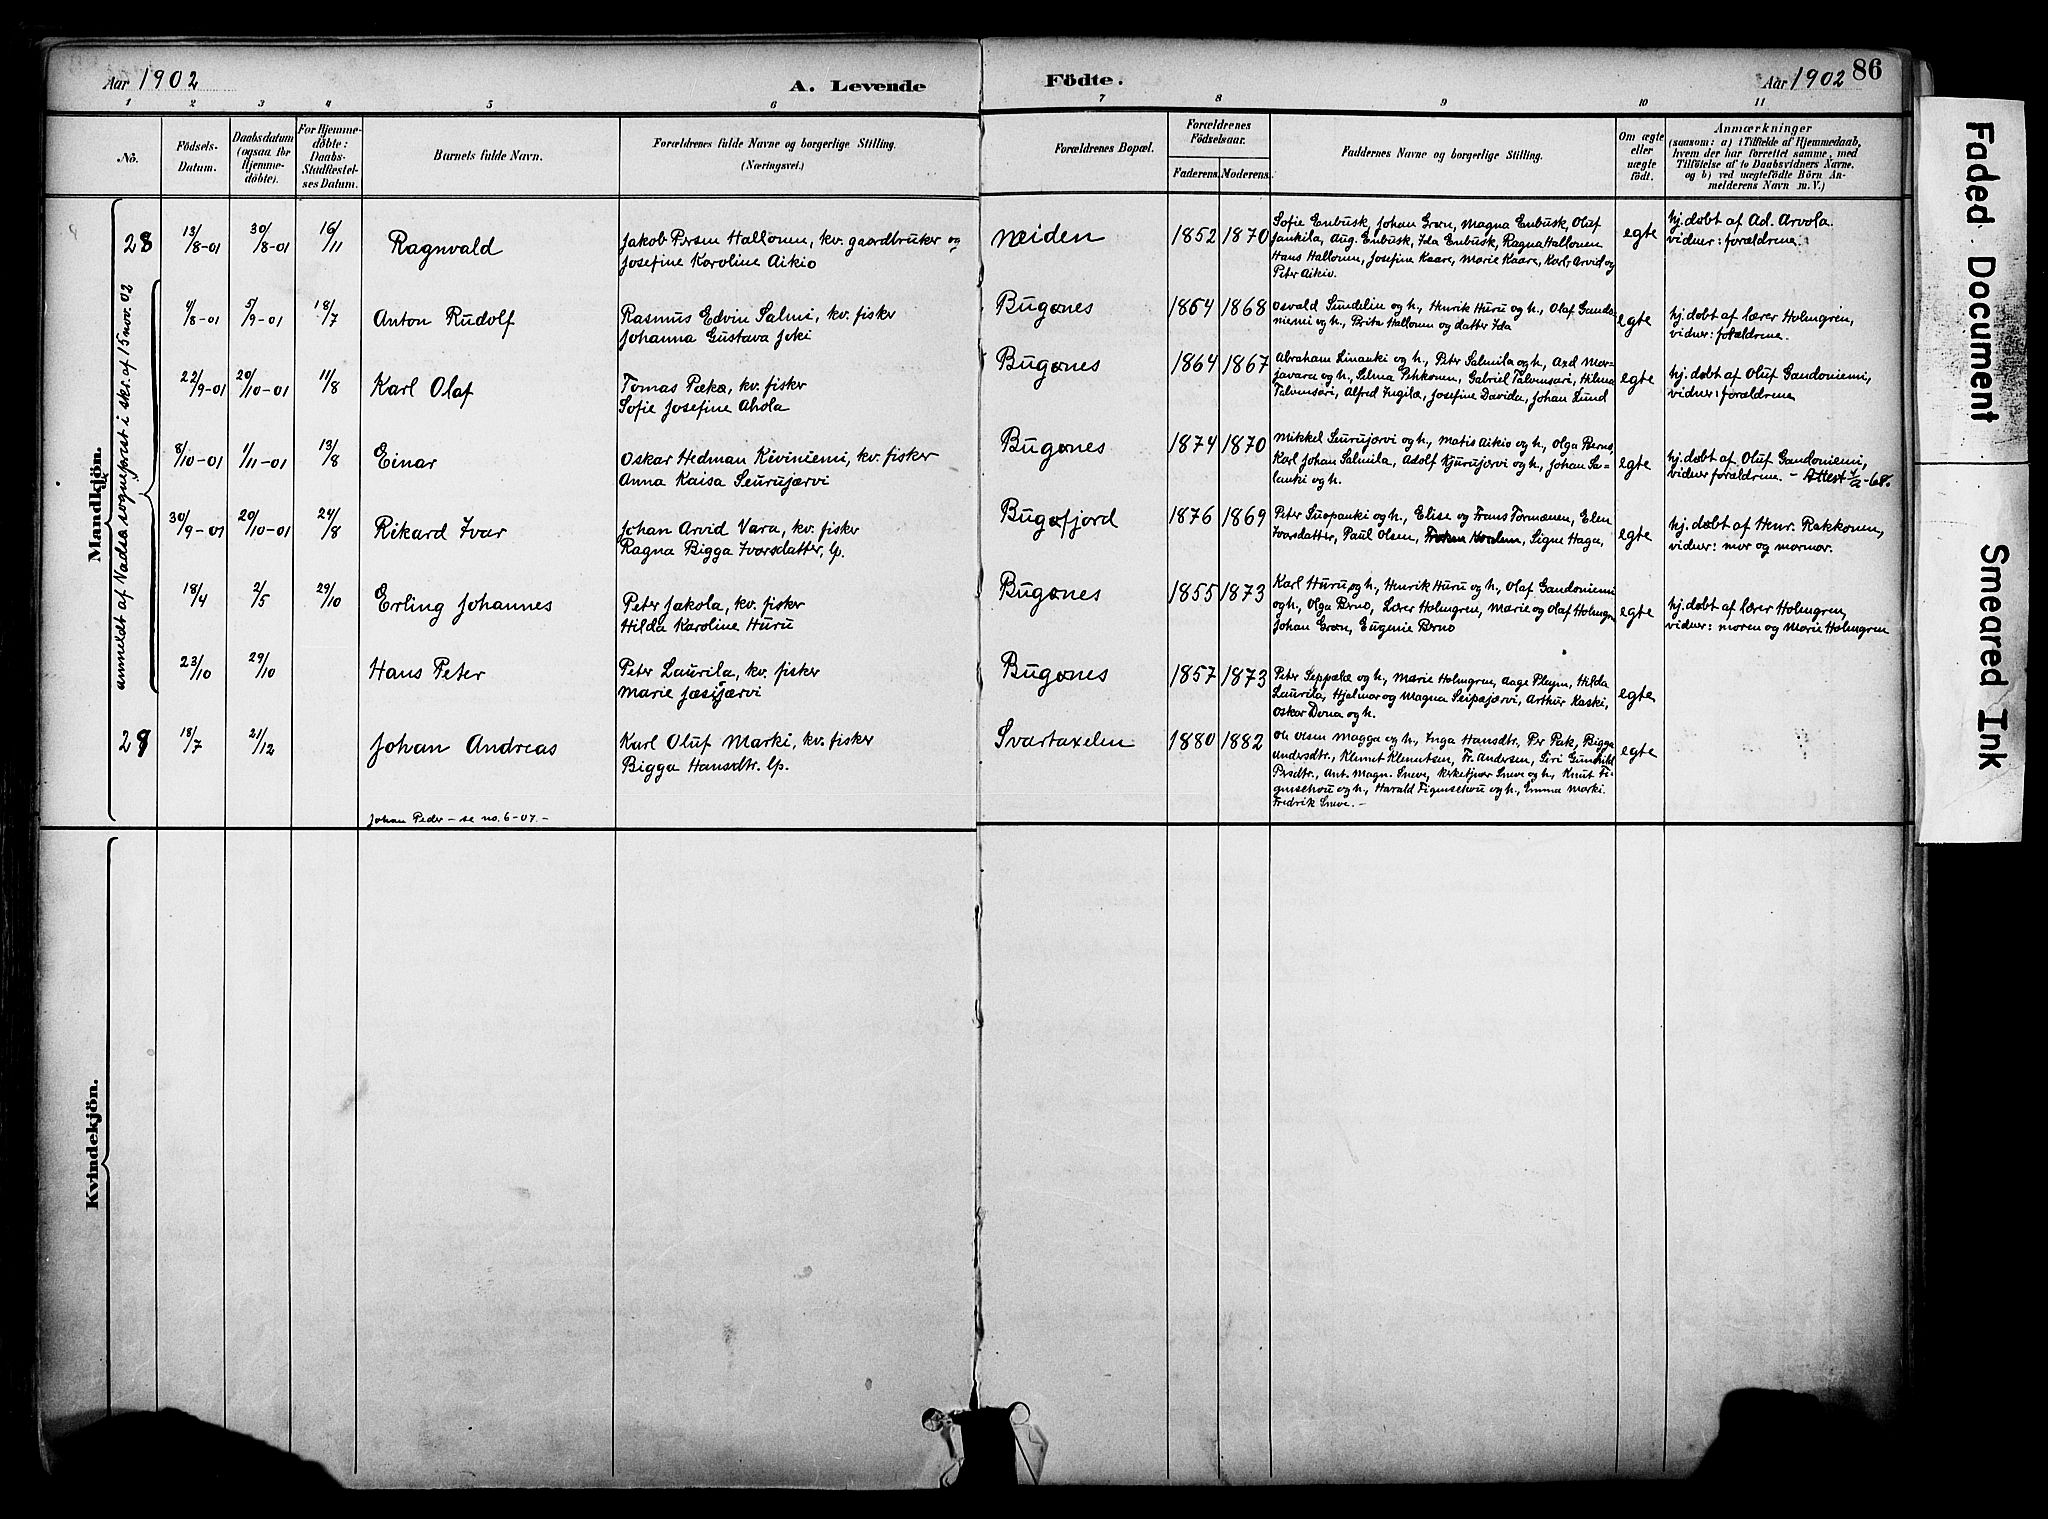 Aar 1902
A. Levende
Födte.
Aar 1902
86
1 2 3 4 5 6 7 8 9 10 11
No.
Födsels-
Datum.
Daabsdatum
(ogsaa for
Hjemme-
døbte).
For Hjemme-
døbte:
Daabs-
Stadfæstel-
ses Datum.
Barnets fulde Navn.
Forældrenes fulde Navne og borgerlige Stilling.
(Næringsvei.)
Forældrenes Bopæl.
Forældrenes
Födselsaar.
Faderens. Moderens.
Faddernes Navne og borgerlige Stilling.
Om ægte
eller
uægte
født.
Anmærkninger
(saasom: a) i Tilfælde af Hjemmedaab,
hvem der har forrettet samme, med
Tilföielse af to Daabsvidners Navne.
og b) ved uægtefödte Börn An-
melderens Navn m. V.)
Mandkjön.
anmeldt af Vadsø sogneprest i skr. af 15 nov. 02
28 13/8-01 30/8-01 16/11 Ragnvald
Jakob Persen Hallonen, kv. gaardbruker og
Josefine Karoline Aikio
Neiden 1852 1870
Sofie Enbusk, Johan Grøn, Magna Enbusk, Oluf
Jankila, Aug. Enbusk, Ida Enbusk, Ragna Hallonen
Hans Hallonen, Josefine Kaare, Marie Kaare, Karl, Arvid og
Peter Aikio.
egte
hj. døbt af Ad. Arvola.
vidner: forældrene.
4/8-01 5/9-01 18/7 Anton Rudolf
Rasmus Edvin Salmi, kv. fisker
Johanna Gustava Joki
Bugønes 1864 1868
Osvald Sundelin og h., Henrik Huru og h., Olaf Gando-
niemi og h., Brita Hallonen og datter Ida
egte
hj. døbt af lærer Holmgren,
vidner: forældrene.
22/9-01 20/10-01 11/8 Karl Olaf
Tomas Pækø, kv. fisker
Sofie Josefine Ahola
Bugønes 1864 1867
Abraham Linanki og h., Peter Salmila og h., Axel Mar-
javara og h., Selma Pehkonen, Gabriel Talvensari, Hilma
Talvensari, Alfred Ingilæ, Josefine Davida, Johan Lund
egte
hj. døbt af Oluf Gandoniemi,
vidner: forældrene
8/10-01 1/11-01 13/8 Einar
Oskar Hedman Kiviniemi, kv. fisker
Anna Kaisa Seurujærvi
Bugønes 1874 1870
Mikkel Seurujærvi og h., Matis Aikio og h., Olga Berno,
Karl Johan Salmila, Adolf Kjurujærvi og h., Johan Sa-
lanki og h.
egte
hj. døbt af Oluf Gandoniemi,
vidner forældrene. - Attest
30/9-01 20/10-01 24/8 Rikard Ivar
Johan Arvid Vara, kv. fisker
Ragna Bigga Ivarsdatter, lp.
Bugøfjord 1876 1869
Peter Suopanki og h., Elise og Frans Tormænen, Elen
Ivarsdatter, Paul Olsen, Signe Haga,
egte
hj. døbt af Henr. Rakkonen,
vidner: mor og mormor.
18/4 2/5 29/10 Erling Johannes
Peter Jakola, kv. fisker
Hilda Karoline Huru
Bugønes 1855 1873
Karl Huru og h., Henrik Huru og h., Olaf Gandoniemi
og h., Olga Berno, Lærer Holmgren, Marie og Olaf Holmgren
Johan Grøn, Eugenie Berno
egte
hj. døbt af lærer Holmgren,
vidner: moren og Marie Holmgren
23/10 29/10 Hans Peter
Peter Laurila, kv. fisker
Marie Jæsijærvi
Bugønes 1857 1873
Peter Seppælæ og h., Marie Holmgren, Aage Pleym, Hilda
Laurila, Hjalmar og Magna Seipajærvi, Arthur Kaski,
Oskar Dona og h.
egte
28 18/7 21/12 Johan Andreas
Karl Oluf Marki, kv. fisker
Bigga Hansdtr. lp.
Svartaxelen 1880 1882
Ole Olsen Magga og h., Inga Hansdtr., Per Pak, Bigga
Andersdtr., Klemet Klemetsen, Fr. Andersen, Siri Gunhild
Persdtr., Ant. Magn. Sneve, kirketjener Sneve og h., Knut Fi-
genschou og h., Harald Figenschou og h., Emma Marki.
Fredrik Sneve. -
egte
Johan Peder - se no. 6-07. -
Kvindekjön.
Faded Document
Smeared Ink